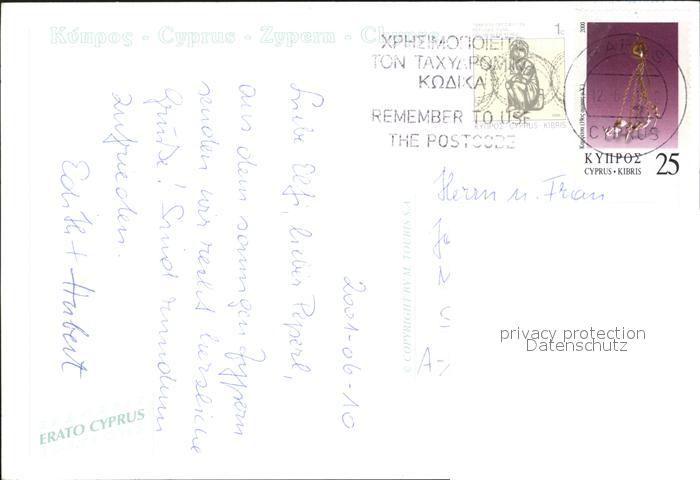 Κύπρος - Cyprus - Zypern -
ΧΡΗΣΙΜΟΠΟΙΕΙΤΕ
ΤΟΝ ΤΑΧΥΔΡΟΜΙΚΟ
ΚΩΔΙΚΑ
REMEMBER TO USE
THE POSTCODE
1c
ΚΥΠΡΟΣ · CYPRUS · KIBRIS
2000
CYPRUS
ΚΥΠΡΟΣ
CYPRUS · KIBRIS
25
2001-06-10
Liebe Elfi, lieber Peperl,
aus dem sonnigen Zypern
senden wir recht herzliche
Grüße! Sind rundum
zufrieden.
Edith + Hubert
Herrn u. Frau
A-
privacy protection
Datenschutz
ERATO CYPRUS